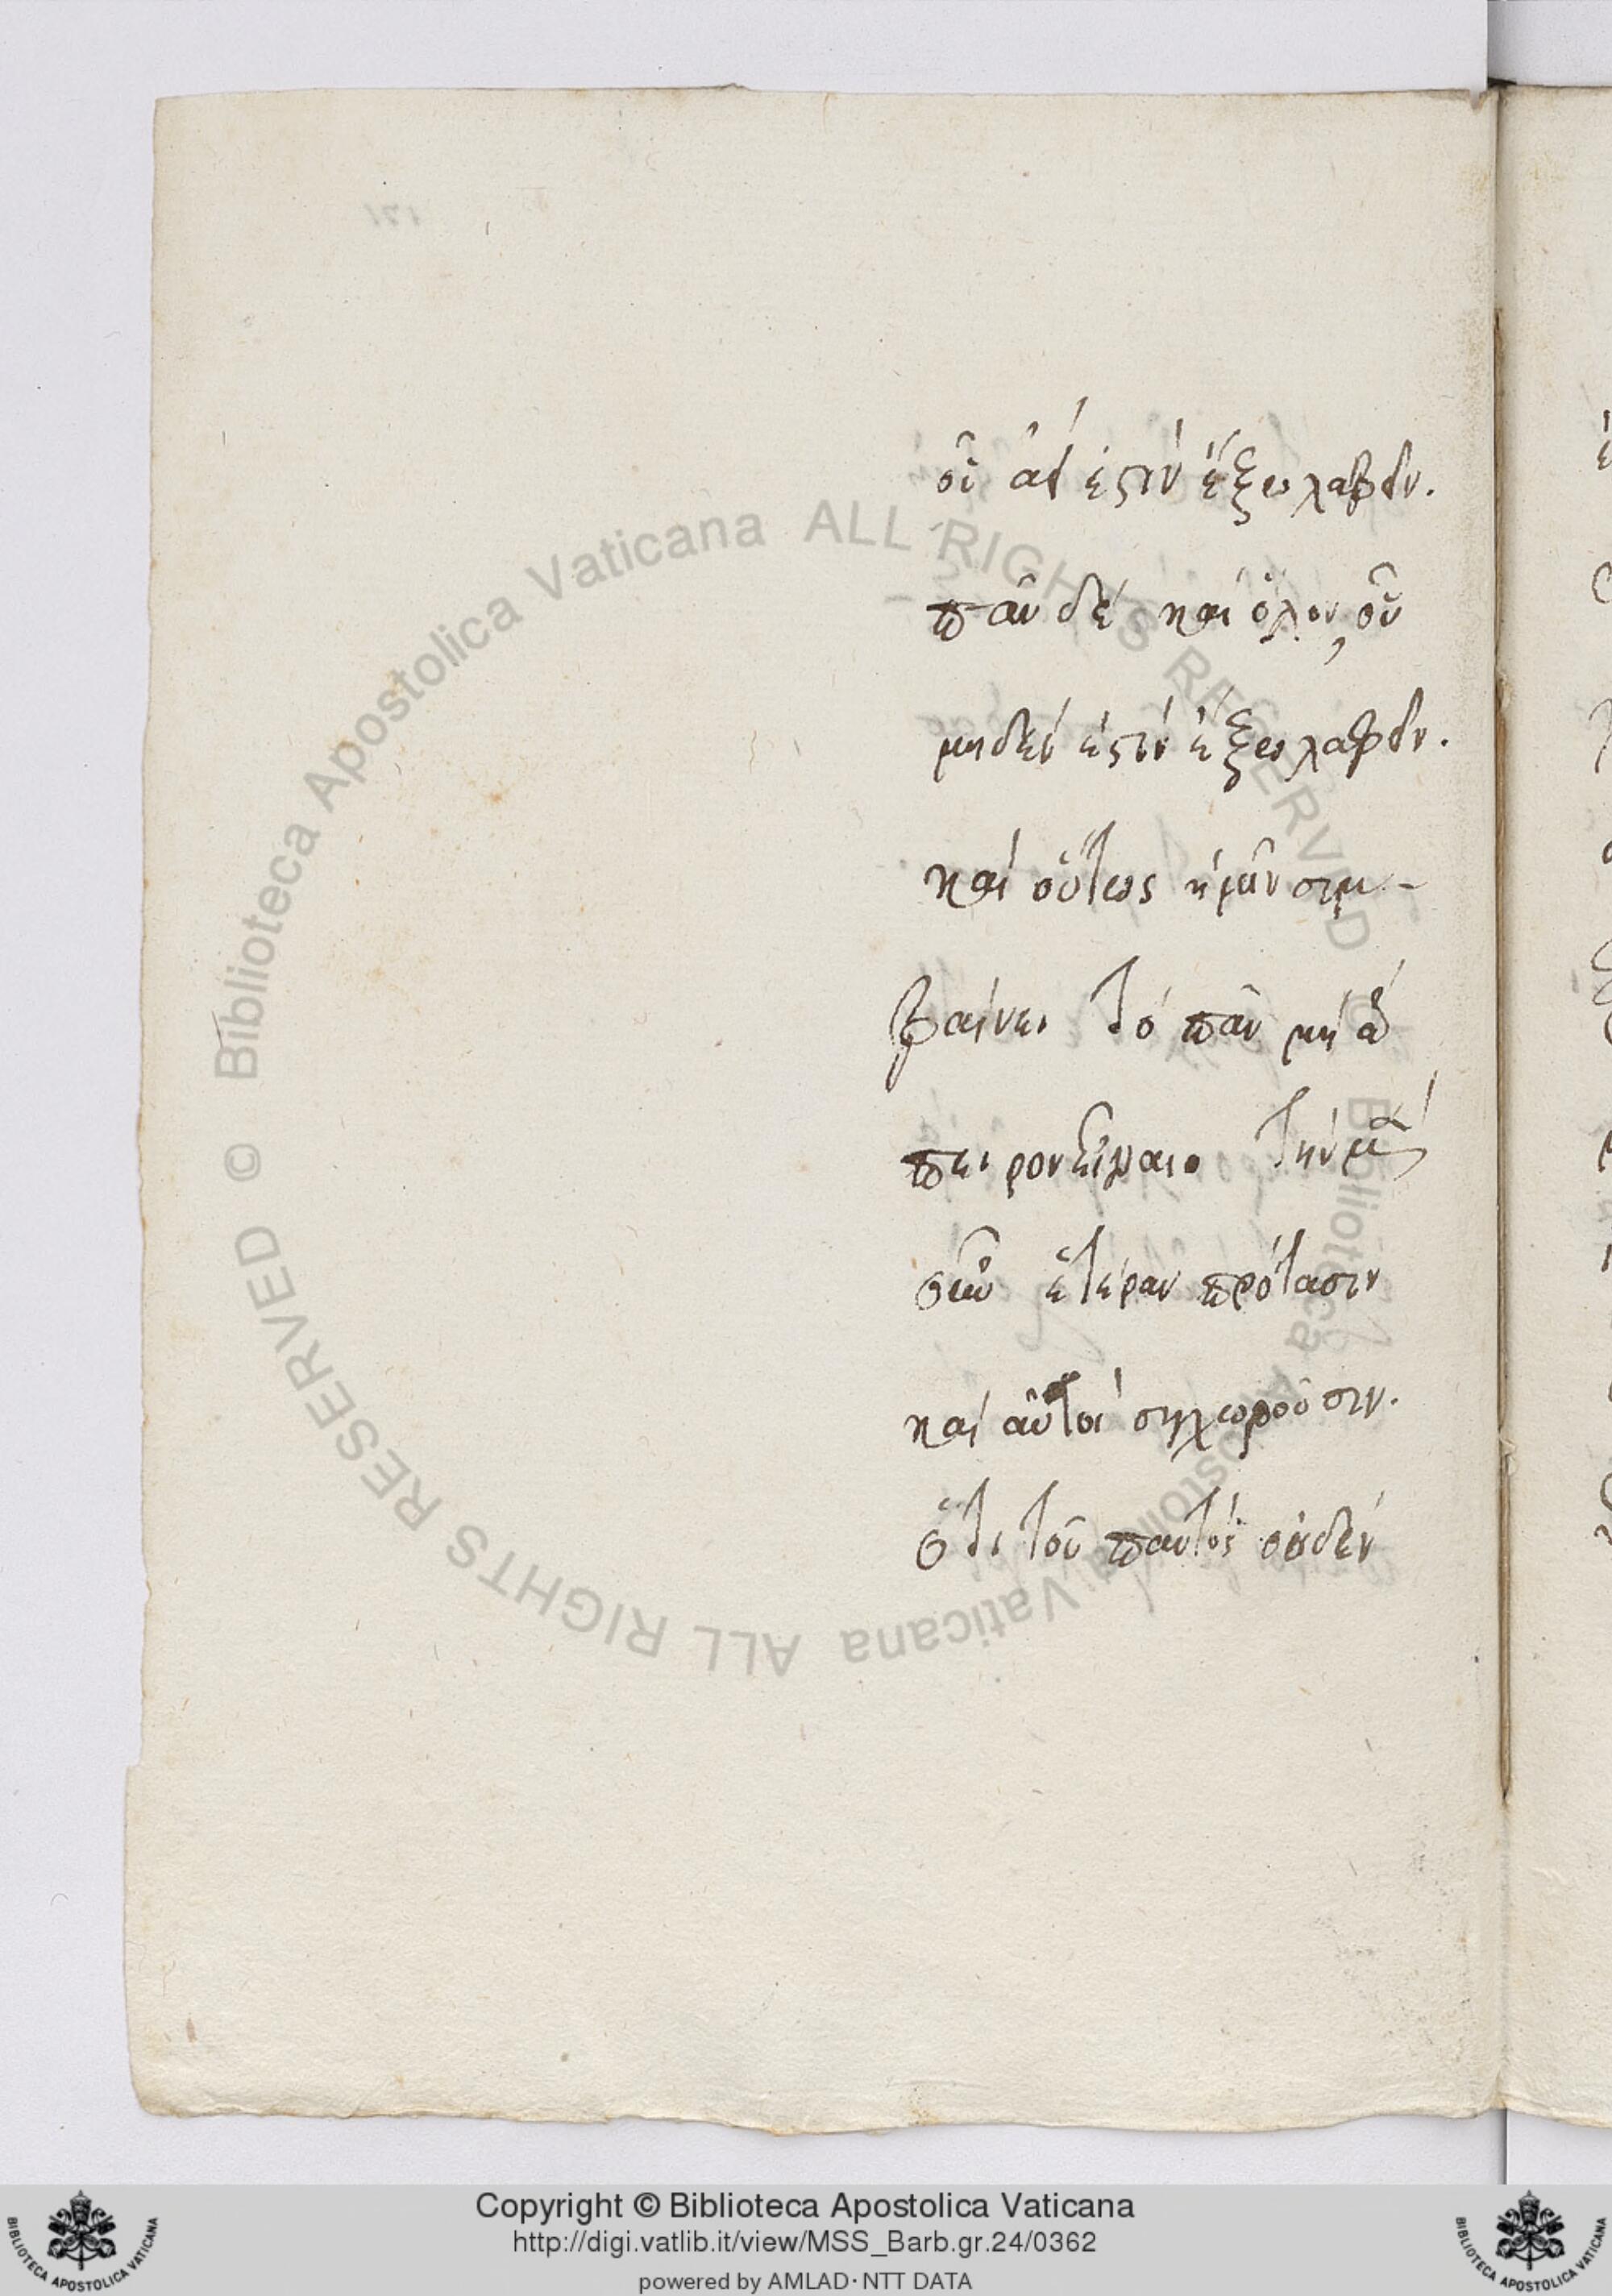 οὗ ἀεί ἐστίν ἔξω λαβεῖν.
πᾶν δέ καί ὅλον, οὗ
μηδέν ἐστίν ἔξω λαβεῖν.
καί οὕτως ἡμῖν συμ-
βαίνει τό πᾶν μή ἄ
πειρον εἶναι. τήν
ἑτέραν πρότασιν
καί αὐτοί συγχωροῦσιν.
ὅτι τοῦ παντός οὐδέν
Biblioteca Apostolica Vaticana ALL RIGHTS RESERVED ©
Copyright © Biblioteca Apostolica Vaticana
http://digi.vatlib.it/view/MSS_Barb.gr.24/0362
powered by AMLAD·NTT DATA
BIBLIOTECA APOSTOLICA VATICANA
BIBLIOTECA APOSTOLICA VATICANA